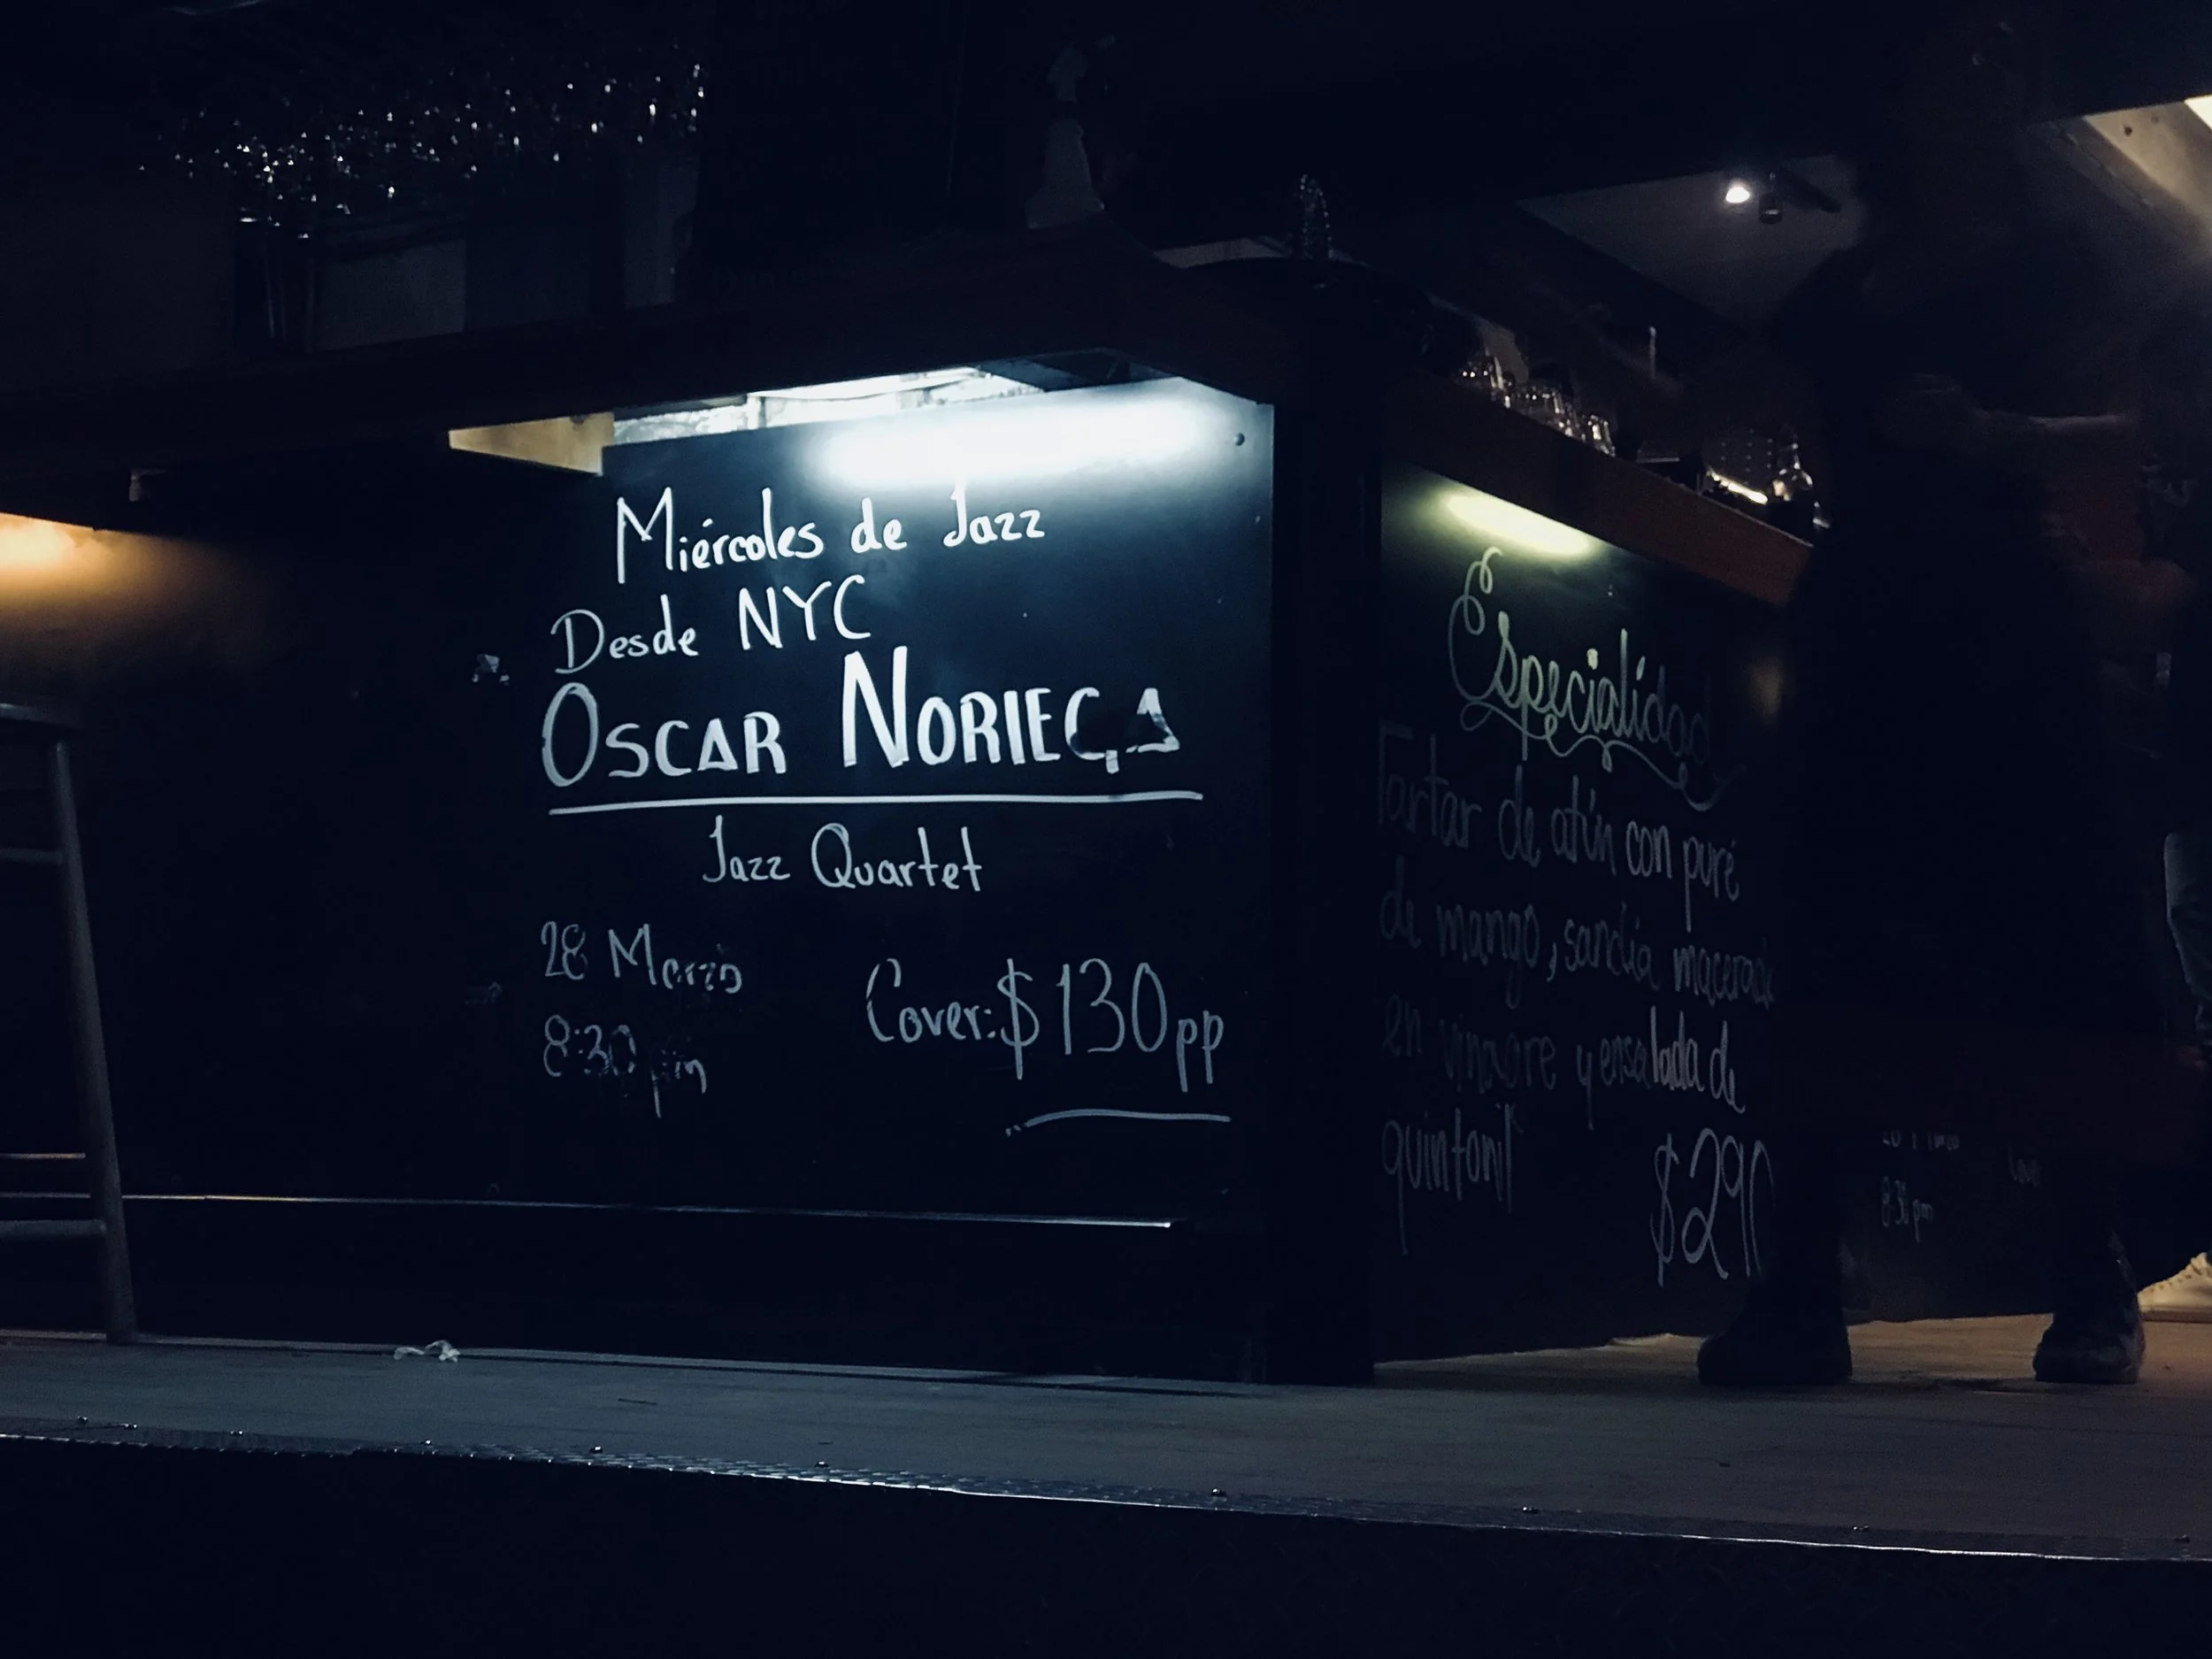 Miércoles de Jazz
Desde NYC
OSCAR NORIEGA
Jazz Quartet
28 Marzo
8:30 pm
Cover: $130 pp
Especialidad
Tartar de atún con puré
de mango, sandía
en vinagre y ensalada de
quintonil
$290
8:30 pm